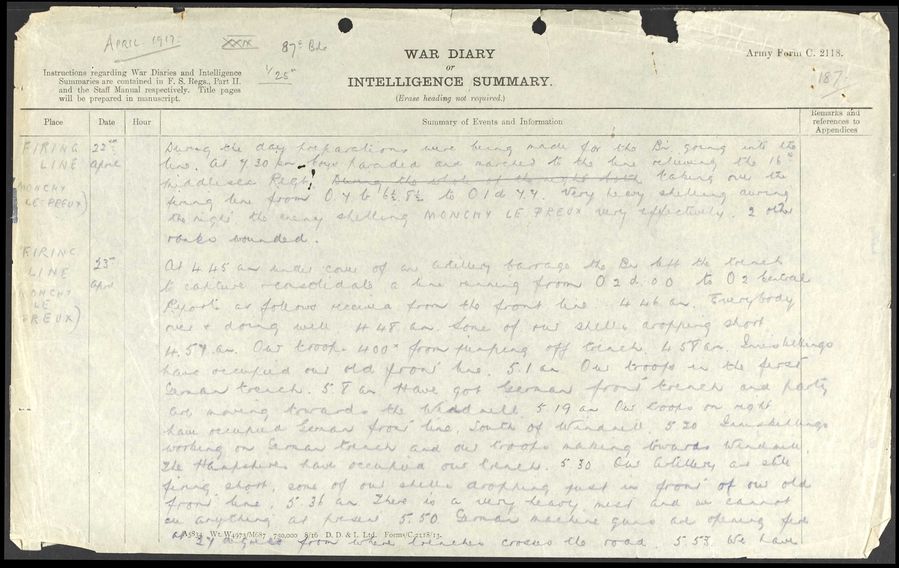 APRIL 1917.
XXIX
87th Bde
1/25"
WAR DIARY
or
INTELLIGENCE SUMMARY.
(Erase heading not required.)
Army Form C. 2118.
187.
Instructions regarding War Diaries and Intelligence
Summaries are contained in F. S. Regs., Part II.
and the Staff Manual respectively. Title pages
will be prepared in manuscript.
Place Date Hour Summary of Events and Information Remarks and references to Appendices
FIRING LINE (MONCHY LE PREUX) 22nd April
During the day preparations were being made for the Bn going into the
line. At 7 30 pm paraded and marched to the line relieving the 16th
Middlesex Regt. During the whole of the night taking over the
firing line from O 1 d 7.7. Very heavy shelling during
the night the enemy shelling MONCHY LE PREUX very effectively. 2 other
ranks wounded.
FIRING LINE (MONCHY LE PREUX) 23rd April
At 4 45 am under cover of an artillery barrage the Bn left the trench
to capture & consolidate a line running from O 2 d. 0 0 to O 2 central
Reports as follows received from the front line. 4 46 am. Everybody
over & doing well. 4 48 am. Some of our shells dropping short
4.57 am. Our troops 400x from jumping off trench. 4 58 am. Inniskillings
have occupied our old front line. 5.1 am. Our troops in the first
German trench. 5.8 am Have got German front trench and party
are moving towards the Windmill. 5 19 am Our troops on right
have occupied German front line, South of Windmill. 5.20 Inniskillings
working on German trench and our troops making towards Windmill
The Hampshires have occupied our trench. 5 30 Our artillery are still
firing short, some of our shells dropping just in front of our old
front line. 5.36 am There is a very heavy mist and we cannot
see anything at present 5.50 German machine guns are opening fire
at 27 degrees from where trenches crosses the road. 5.55 We have
Wt. W4973/M687 750,000 8/16 D. D. & L. Ltd. Forms/C.2118/13.